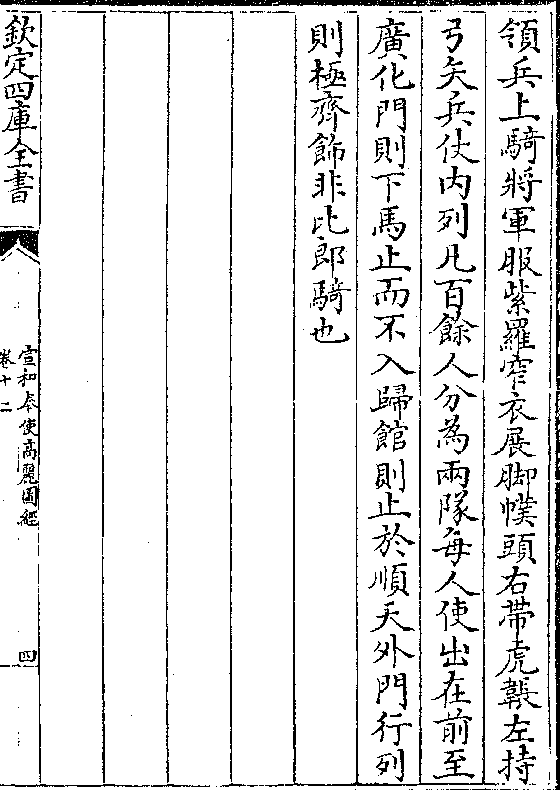 領兵上騎將軍服紫羅窄衣展脚幞頭右帶虎韔左持
弓矢兵仗内列凡百餘人分為兩隊每人使出在前至
廣化門則下馬止而不入歸館則止於順天外門行列
則極齊飾非比郎騎也
欽定四庫全書
宣和奉使高麗圖經
卷十二
四